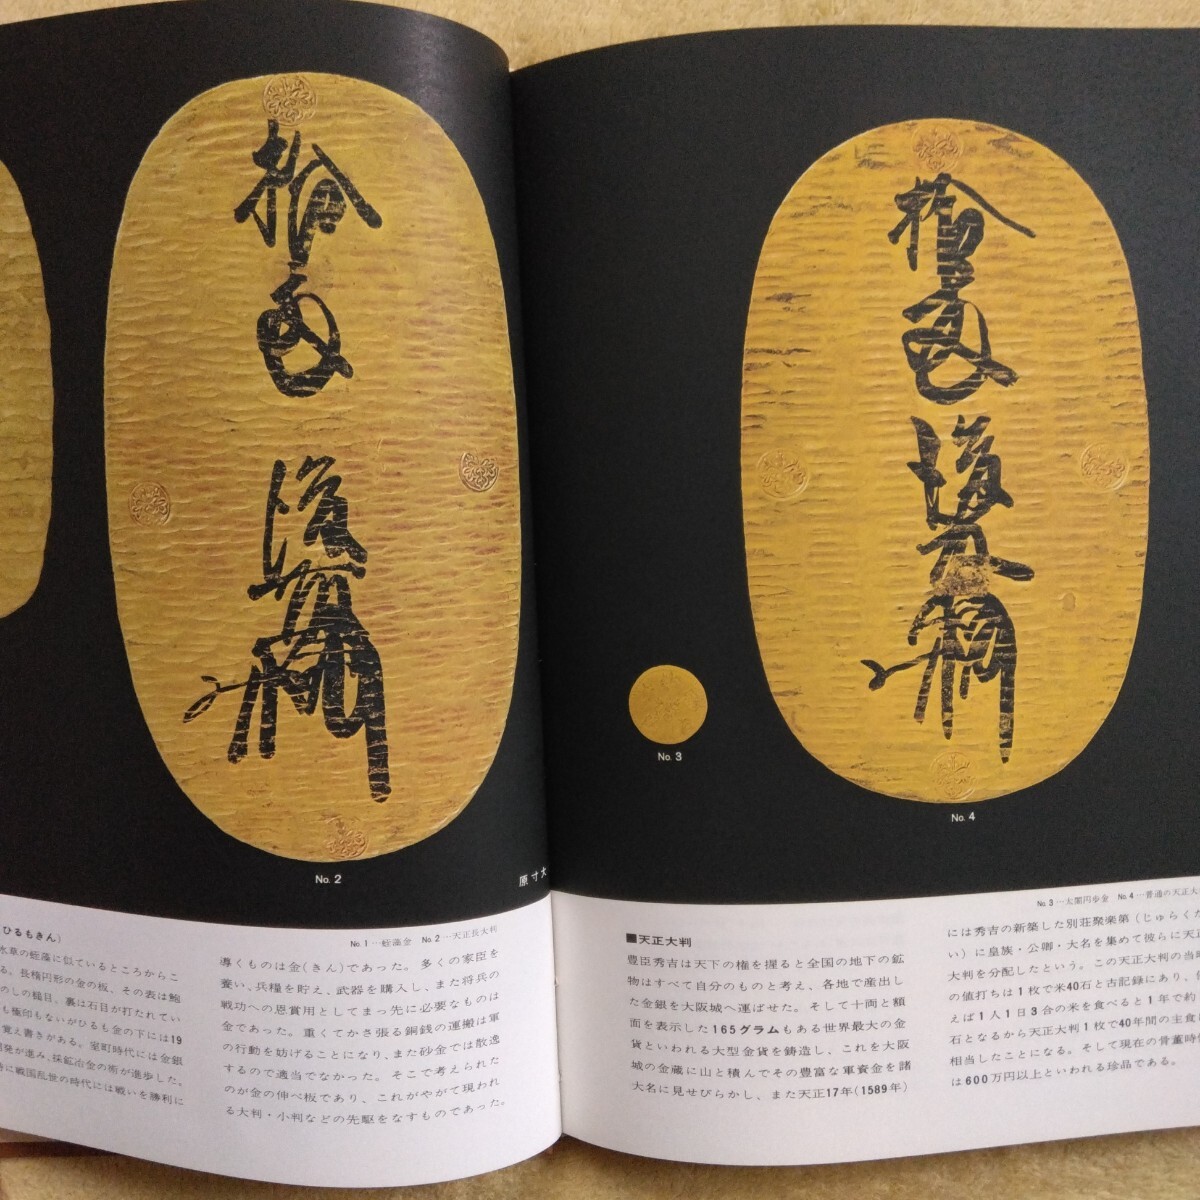 拾両後藤
No. 2
原寸大
拾両後藤
No. 3
No. 4
No. 1 …蛭藻金　No. 2 …天正長大判
ひるもきん)
水草の蛭藻に似ているところからこ
る。長楕円形の金の板、その表は鮑
のしの槌目、裏は石目が打たれてい
も極印もないがひるも金の下には19
覚え書きがある。室町時代には金銀
開発が進み、採鉱冶金の術が進歩した。
特に戦国乱世の時代には戦いを勝利に
導くものは金(きん)であった。多くの家臣を
養い、兵糧を貯え、武器を購入し、また将兵の
戦功への恩賞用としてまっ先に必要なものは
金であった。重くてかさ張る銅銭の運搬は軍
の行動を妨げることになり、また砂金では散逸
するので適当でなかった。そこで考えられた
のが金の伸べ板であり、これがやがて現われ
る大判・小判などの先駆をなすものであった。
No. 3 …太閤円歩金　No. 4 …普通の天正大
■天正大判
豊臣秀吉は天下の権を握ると全国の地下の鉱
物はすべて自分のものと考え、各地で産出し
た金銀を大阪城へ運ばせた。そして十両と額
面を表示した165グラムもある世界最大の金
貨といわれる大型金貨を鋳造し、これを大阪
城の金蔵に山と積んでその豊富な軍資金を諸
大名に見せびらかし、また天正17年(1589年)
には秀吉の新築した別荘聚楽第(じゅらくだ
い)に皇族・公卿・大名を集めて彼らに天正
大判を分配したという。この天正大判の当時
の値打ちは1枚で米40石と古記録にあり、
えば1人1日3合の米を食べると1年で約
石となるから天正大判1枚で40年間の主食に
相当したことになる。そして現在の骨董時価
は600万円以上といわれる珍品である。